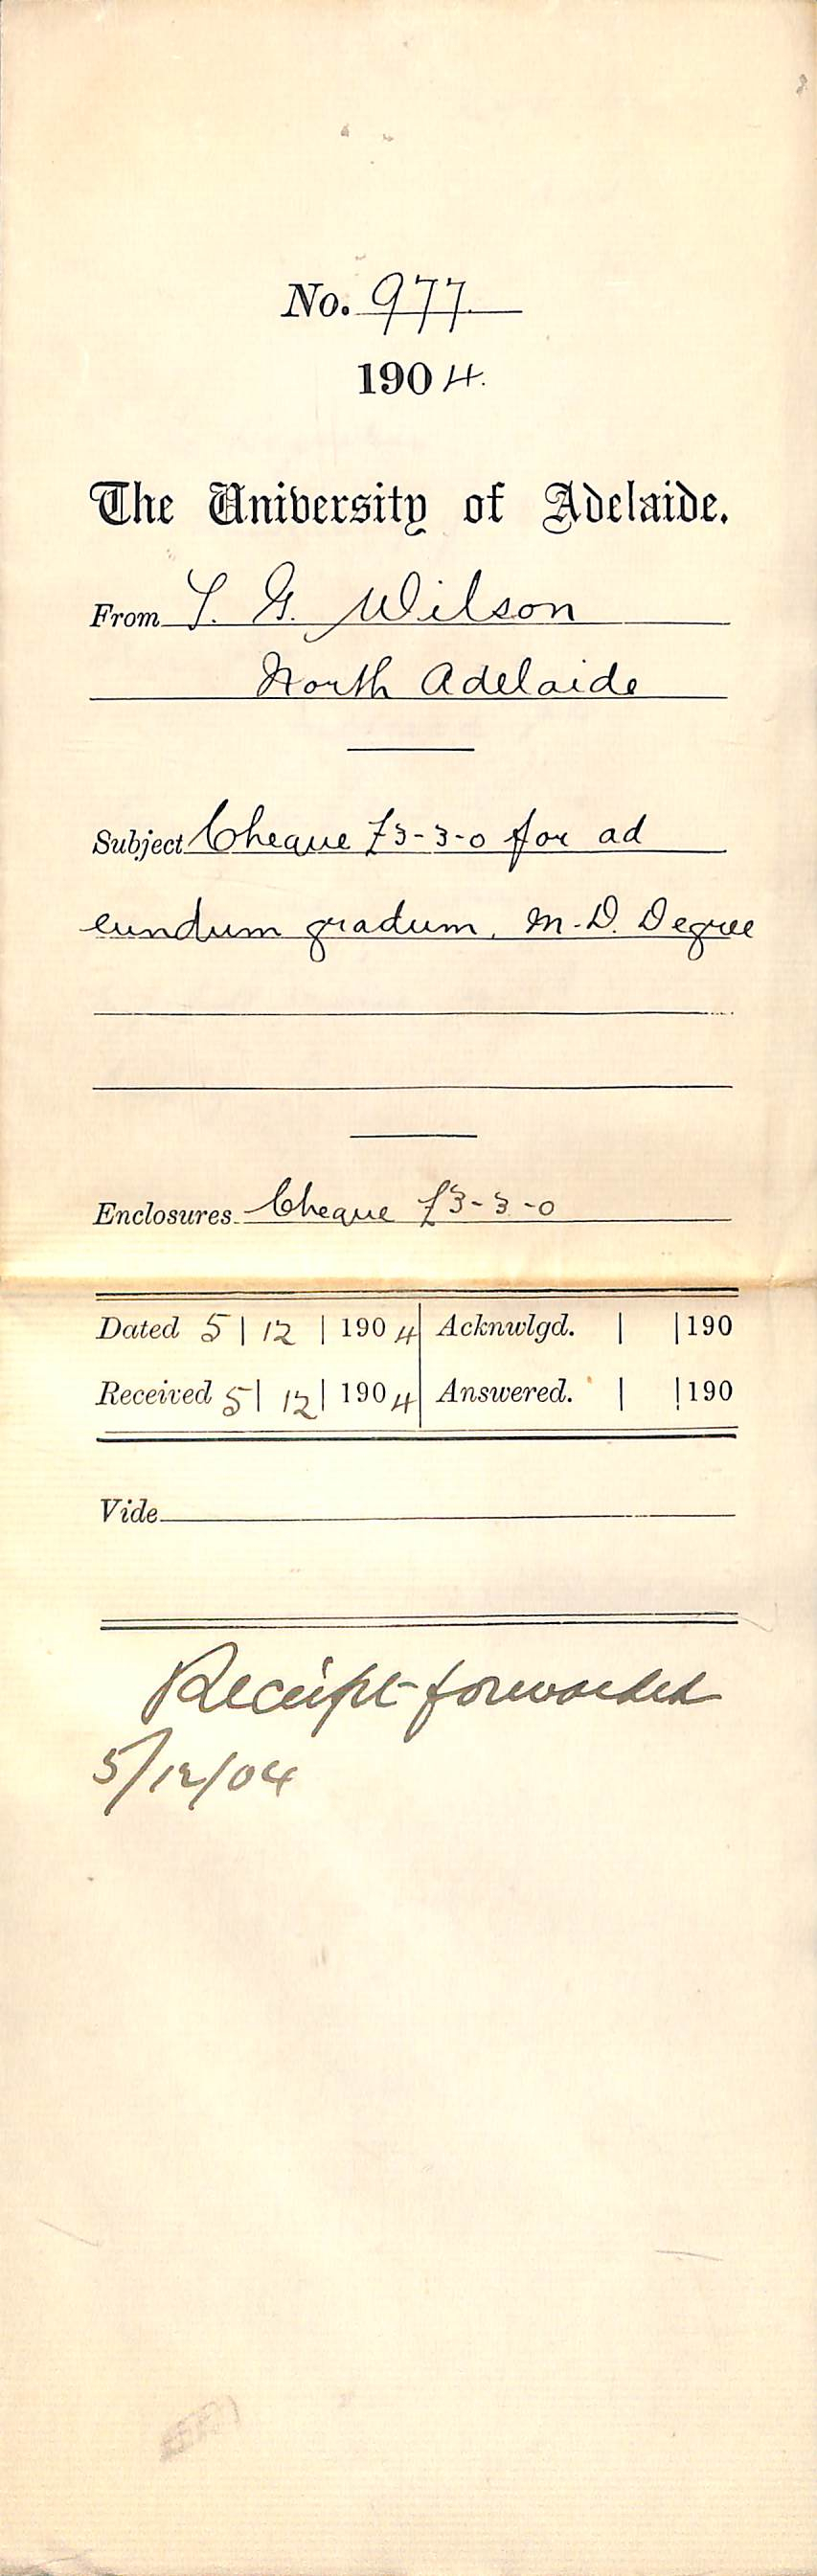 No. 977
1904.
The University of Adelaide.
From T. G. Wilson
North Adelaide
Subject Cheque £3-3-0 for ad
eundum gradum, M.D. Degree
Enclosures Cheque £3-3-0
Dated 5 | 12 | 1904 | Acknwlgd. | | 190
Received 5 | 12 | 1904 | Answered. | | 190
Vide
Receipt forwarded
5/12/04